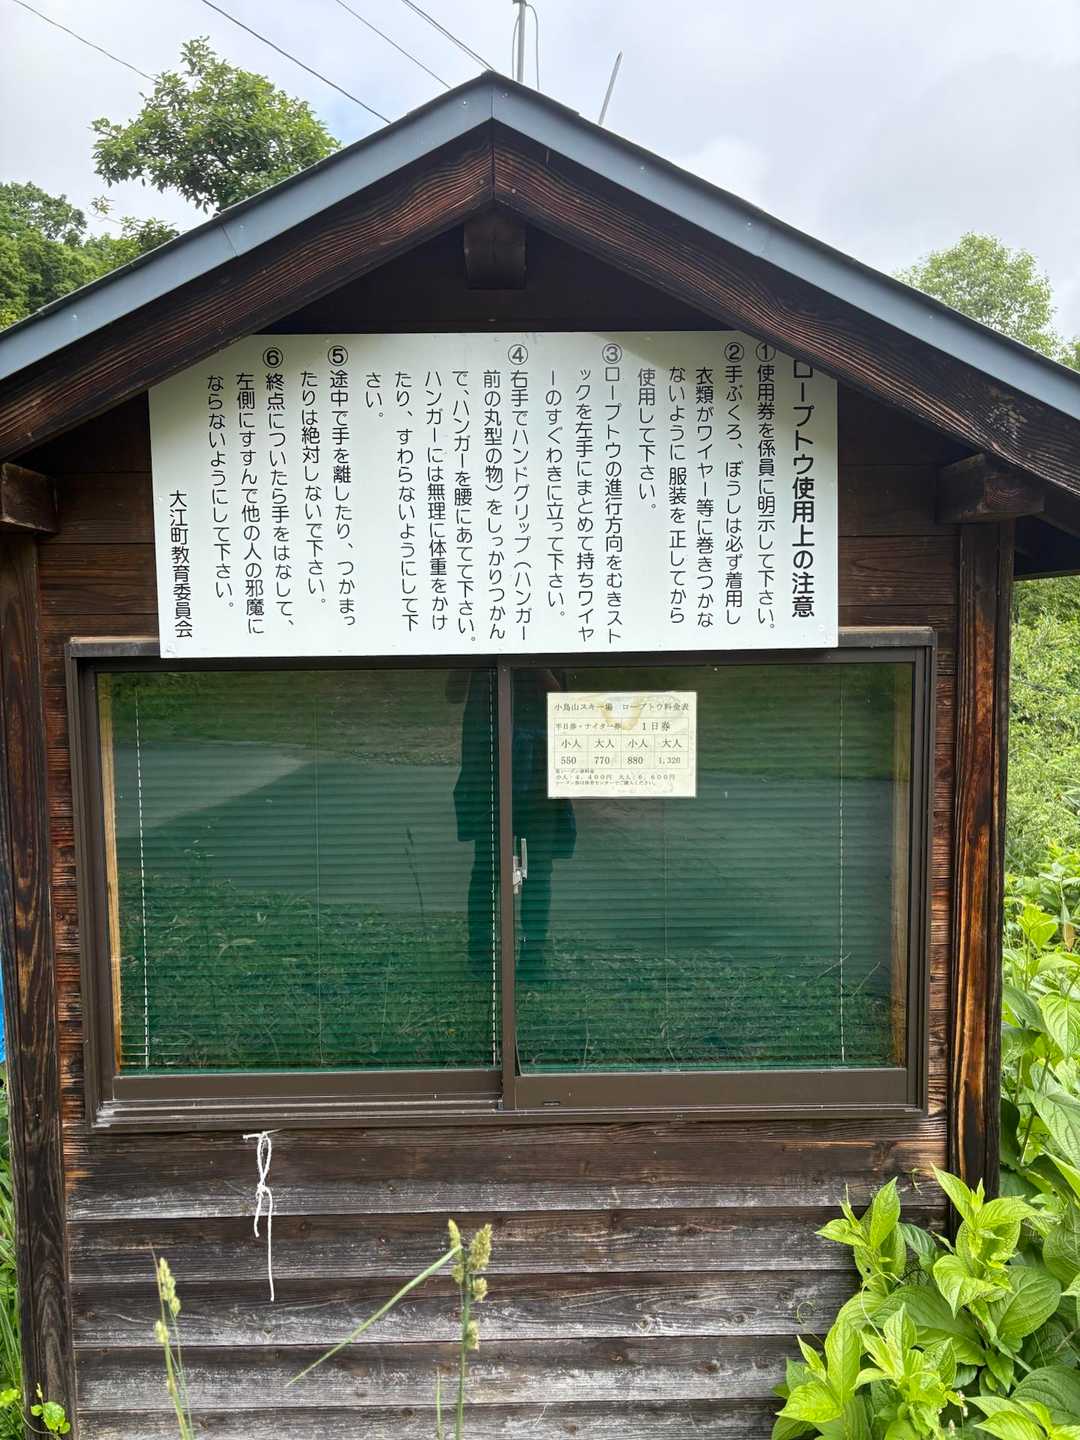 ロープトウ使用上の注意
①使用券を係員に明示して下さい。
②手ぶくろ、ぼうしは必ず着用し
衣類がワイヤー等に巻きつかな
ないように服装を正してから
使用して下さい。
③ロープトウの進行方向をむきスト
ックを左手にまとめて持ちワイヤ
ーのすぐわきに立って下さい。
④右手でハンドグリップ（ハンガー
前の丸型の物）をしっかりつかん
で、ハンガーを腰にあてて下さい。
ハンガーには無理に体重をかけ
たり、すわらないようにして下
さい。
⑤途中で手を離したり、つかまっ
たりは絶対しないで下さい。
⑥終点についたら手をはなして、
左側にすすんで他の人の邪魔に
ならないようにして下さい。
大江町教育委員会
小鳥山スキー場 ロープトウ料金表
半日券・ナイター券 1日券
小人 大人 小人 大人
550 770 880 1,320
小人：4,400円 大人：6,600円